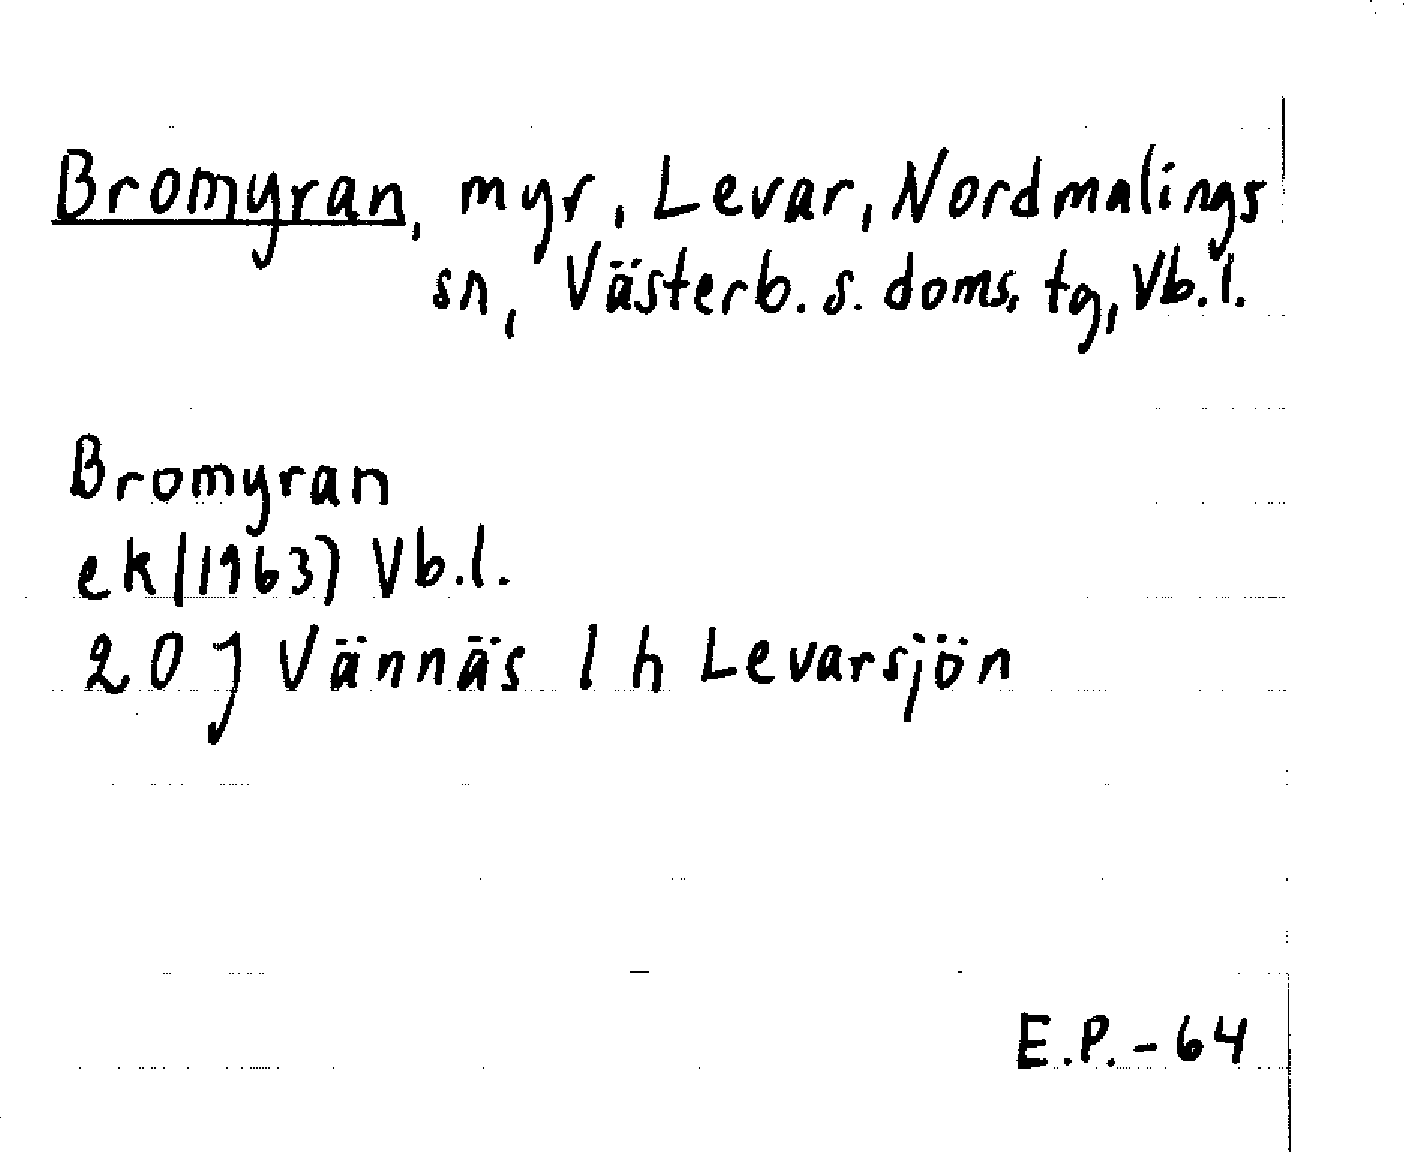 Bromyran, myr, Levar, Nordmalings
sn, Västerb. s. doms. tg, Vb. l.
Bromyran
ek (1963) Vb. l.
20 J Vännäs 1 h Levarsjön
E.P. - 64